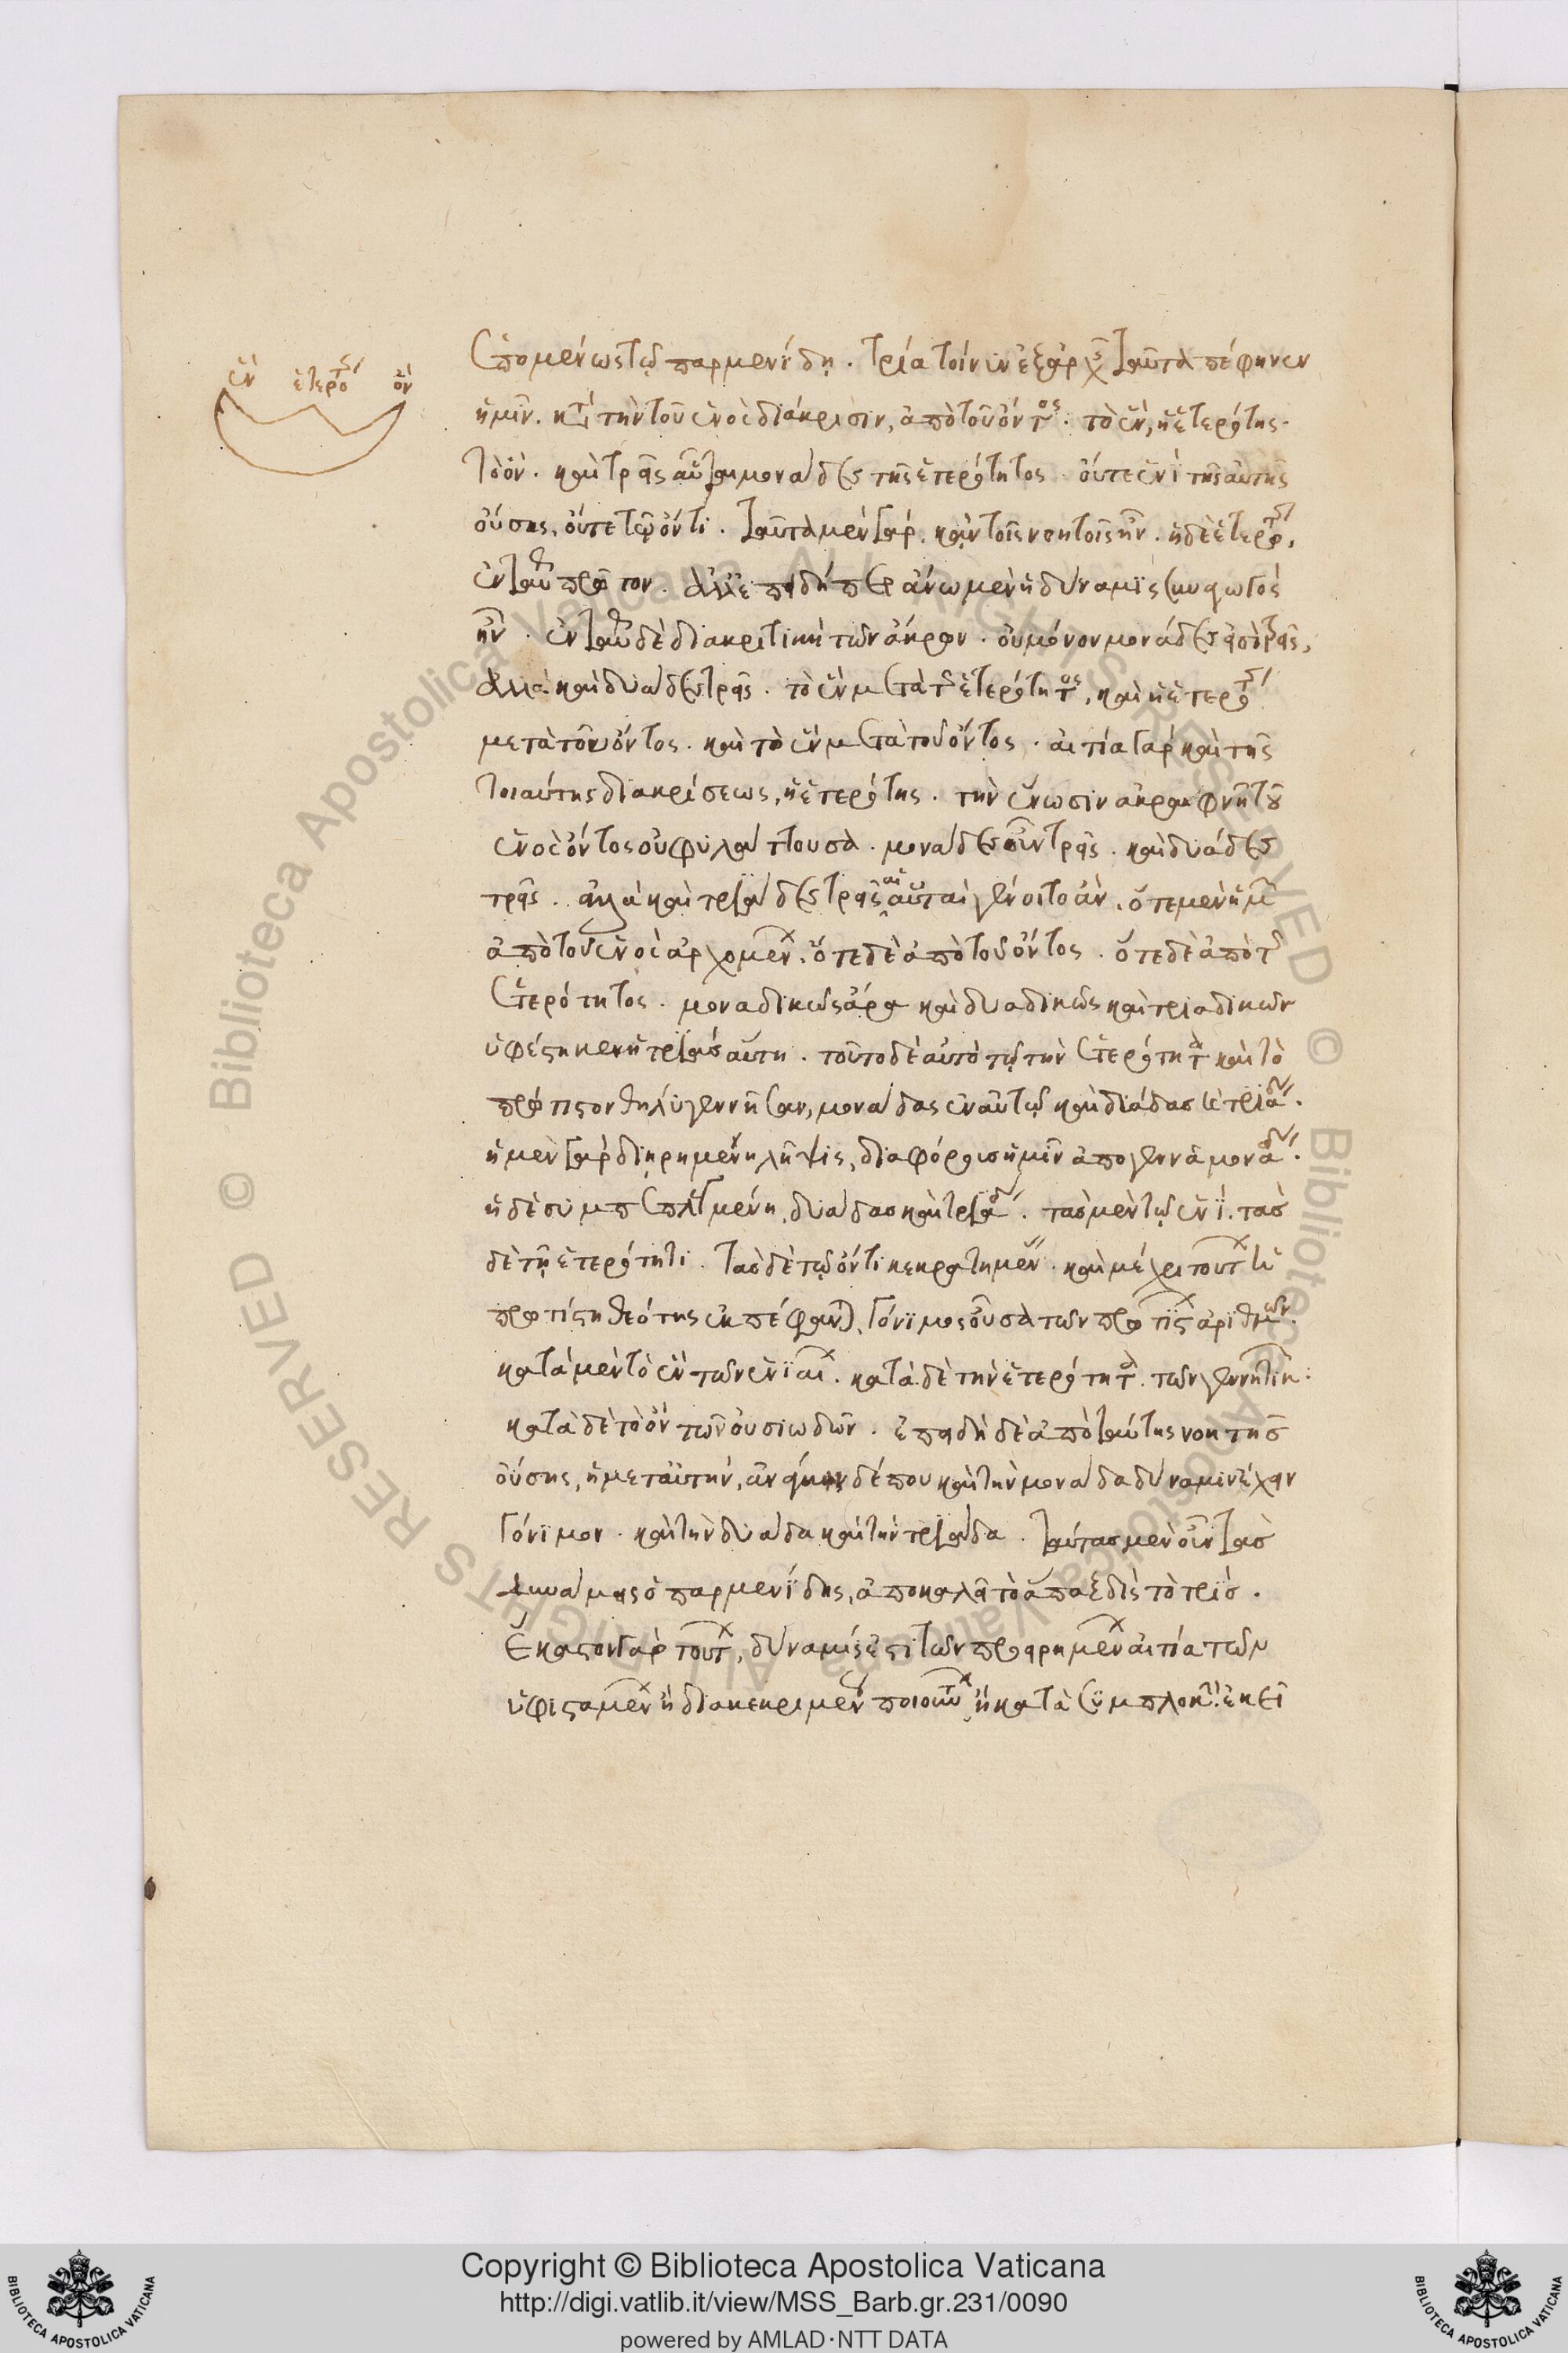 ἓν ἑτερότης ὄν
Ἑπομένως τῷ παρμενίδῃ. τρία τοίνυν ἐξ ἀρχῆς ταῦτα πέφηνεν
ἡμῖν. κατὰ τὴν τοῦ ἑνὸς διάκρισιν, ἀπὸ τοῦ ὄντος. τὸ ἕν, ἡ ἑτερότης.
τὸ ὄν. καὶ τρεῖς αὗται μονάδες τῆς ἑτερότητος οὔτε ἑνὶ τῆς αὐτῆς
οὔσης, οὔτε τῷ ὄντι. ταῦτα μὲν γὰρ. κἀν τοῖς νοητοῖς ἦν. ἡ δὲ ἑτερότης,
ἐνταῦθα πρῶτον. ἀλλ' ἐπειδήπερ ἄνω μὲν ἡ δύναμις συναγωγὸς
ἦν. ἐνταῦθα δὲ διακριτικὴ τῶν ἄκρων. οὐ μόνον μονάδες εἰσὶ τρεῖς,
ἀλλὰ καὶ δυάδες τρεῖς. τὸ ἓν μετὰ τῆς ἑτερότητος, καὶ ἡ ἑτερότης
μετὰ τοῦ ὄντος. καὶ τὸ ἓν μετὰ τοῦ ὄντος. αἰτία γὰρ καὶ τῆς
τοιαύτης διακρίσεως, ἡ ἑτερότης. τὴν ἕνωσιν ἀκραιφνῆ τοῦ
ἑνὸς ὄντος οὐ φυλάττουσα. μονάδες οὖν τρεῖς. καὶ δυάδες
τρεῖς. ἀλλὰ καὶ τριάδες τρεῖς αἱ αὗται γένοιτο ἄν. ὅτε μὲν ἡμῖν
ἀπὸ τοῦ ἑνὸς ἀρχομένων. ὅτε δὲ ἀπὸ τοῦ ὄντος. ὅτε δὲ ἀπὸ τῆς
ἑτερότητος. μοναδικῶς ἄρα καὶ δυαδικῶς καὶ τριαδικῶς
ὑφέστηκεν ἡ τριὰς αὕτη. τοῦτο δὲ αὐτὸ τῷ τὴν ἑτερότητα καὶ τὸ
πρώτιστον θῆλυ γεννῆσαν, μονάδας ἐν αὐτῷ καὶ δυάδας καὶ τριάδας.
ἡ μὲν γὰρ διῃρημένη λῆψις, διαφόρους ἡμῖν ἀπογεννᾷ μονάδας.
ἡ δὲ συμπεπλεγμένη, δυάδας καὶ τριάδας. τὰς μὲν τῷ ἑνί. τὰς
δὲ τῇ ἑτερότητι. τὰς δὲ τῷ ὄντι κεκρατημένας. καὶ μέχρι τούτων ἡ
πρωτίστη θεότης ἐκπέφανται, γόνιμος οὖσα τῶν πρωτίστων ἀριθμῶν.
κατὰ μὲν τὸ ἓν τῶν ἑνιαίων. κατὰ δὲ τὴν ἑτερότητα. τῶν γεννητικῶν:
κατὰ δὲ τὸ ὂν τῶν οὐσιωδῶν. ἐπειδὴ δὲ ἀπὸ ταύτης νοητῆς
οὔσης, ἡ μετ' αὐτήν, ἀνάγκη δέ που καὶ τὴν μονάδα δύναμιν ἔχειν
γόνιμον. καὶ τὴν δυάδα καὶ τὴν τριάδα. ταύτας μὲν οὖν τὰς
δυνάμεις ὁ παρμενίδης, ἀποκαλεῖ τὸ ἅπαξ δὶς τὸ τρίς.
Ἕκαστον γὰρ τούτων, δύναμίς ἐστι τῶν προειρημένων αἰτία τῶν
ὑφισταμένων ἢ διακεκριμένως ποιούντων ἢ κατὰ συμπλοκήν. ἐκεῖ
Copyright © Biblioteca Apostolica Vaticana
http://digi.vatlib.it/view/MSS_Barb.gr.231/0090
powered by AMLAD·NTT DATA